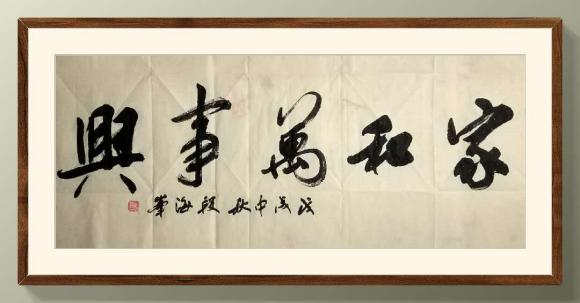 家和萬事興
戊戌中秋 海